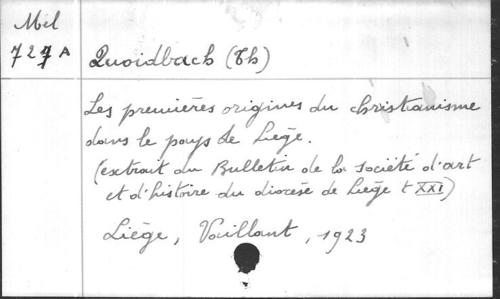 Mél
727 A
Quoidbach (Th)
Les premières origines du christianisme
dans le pays de Liège.
(extrait du Bulletin de la société d'art
et d'histoire du diocèse de Liège t XXI)
Liège, Vaillant, 1923